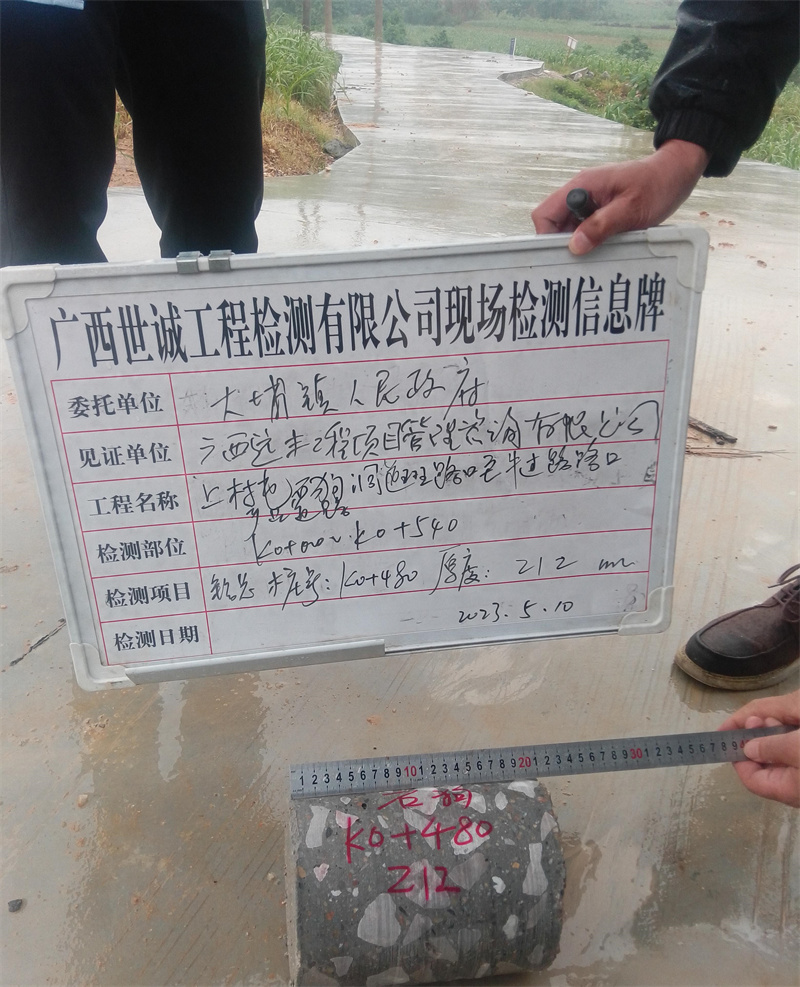 广西世诚工程检测有限公司现场检测信息牌
委托单位 大埔镇人民政府
见证单位 广西 工程项目管理咨询有限公司
工程名称 上村屯 洞 路口至 路路口
检测部位 K0+000~K0+540
检测项目 钻芯 桩号:K0+480 厚度:212 mm
检测日期 2023.5.10
1 2 3 4 5 6 7 8 9 10 1 2 3 4 5 6 7 8 9 20 1 2 3 4 5 6 7 8 9 30 1 2 3 4 5 6 7 8 9
K0+480
212